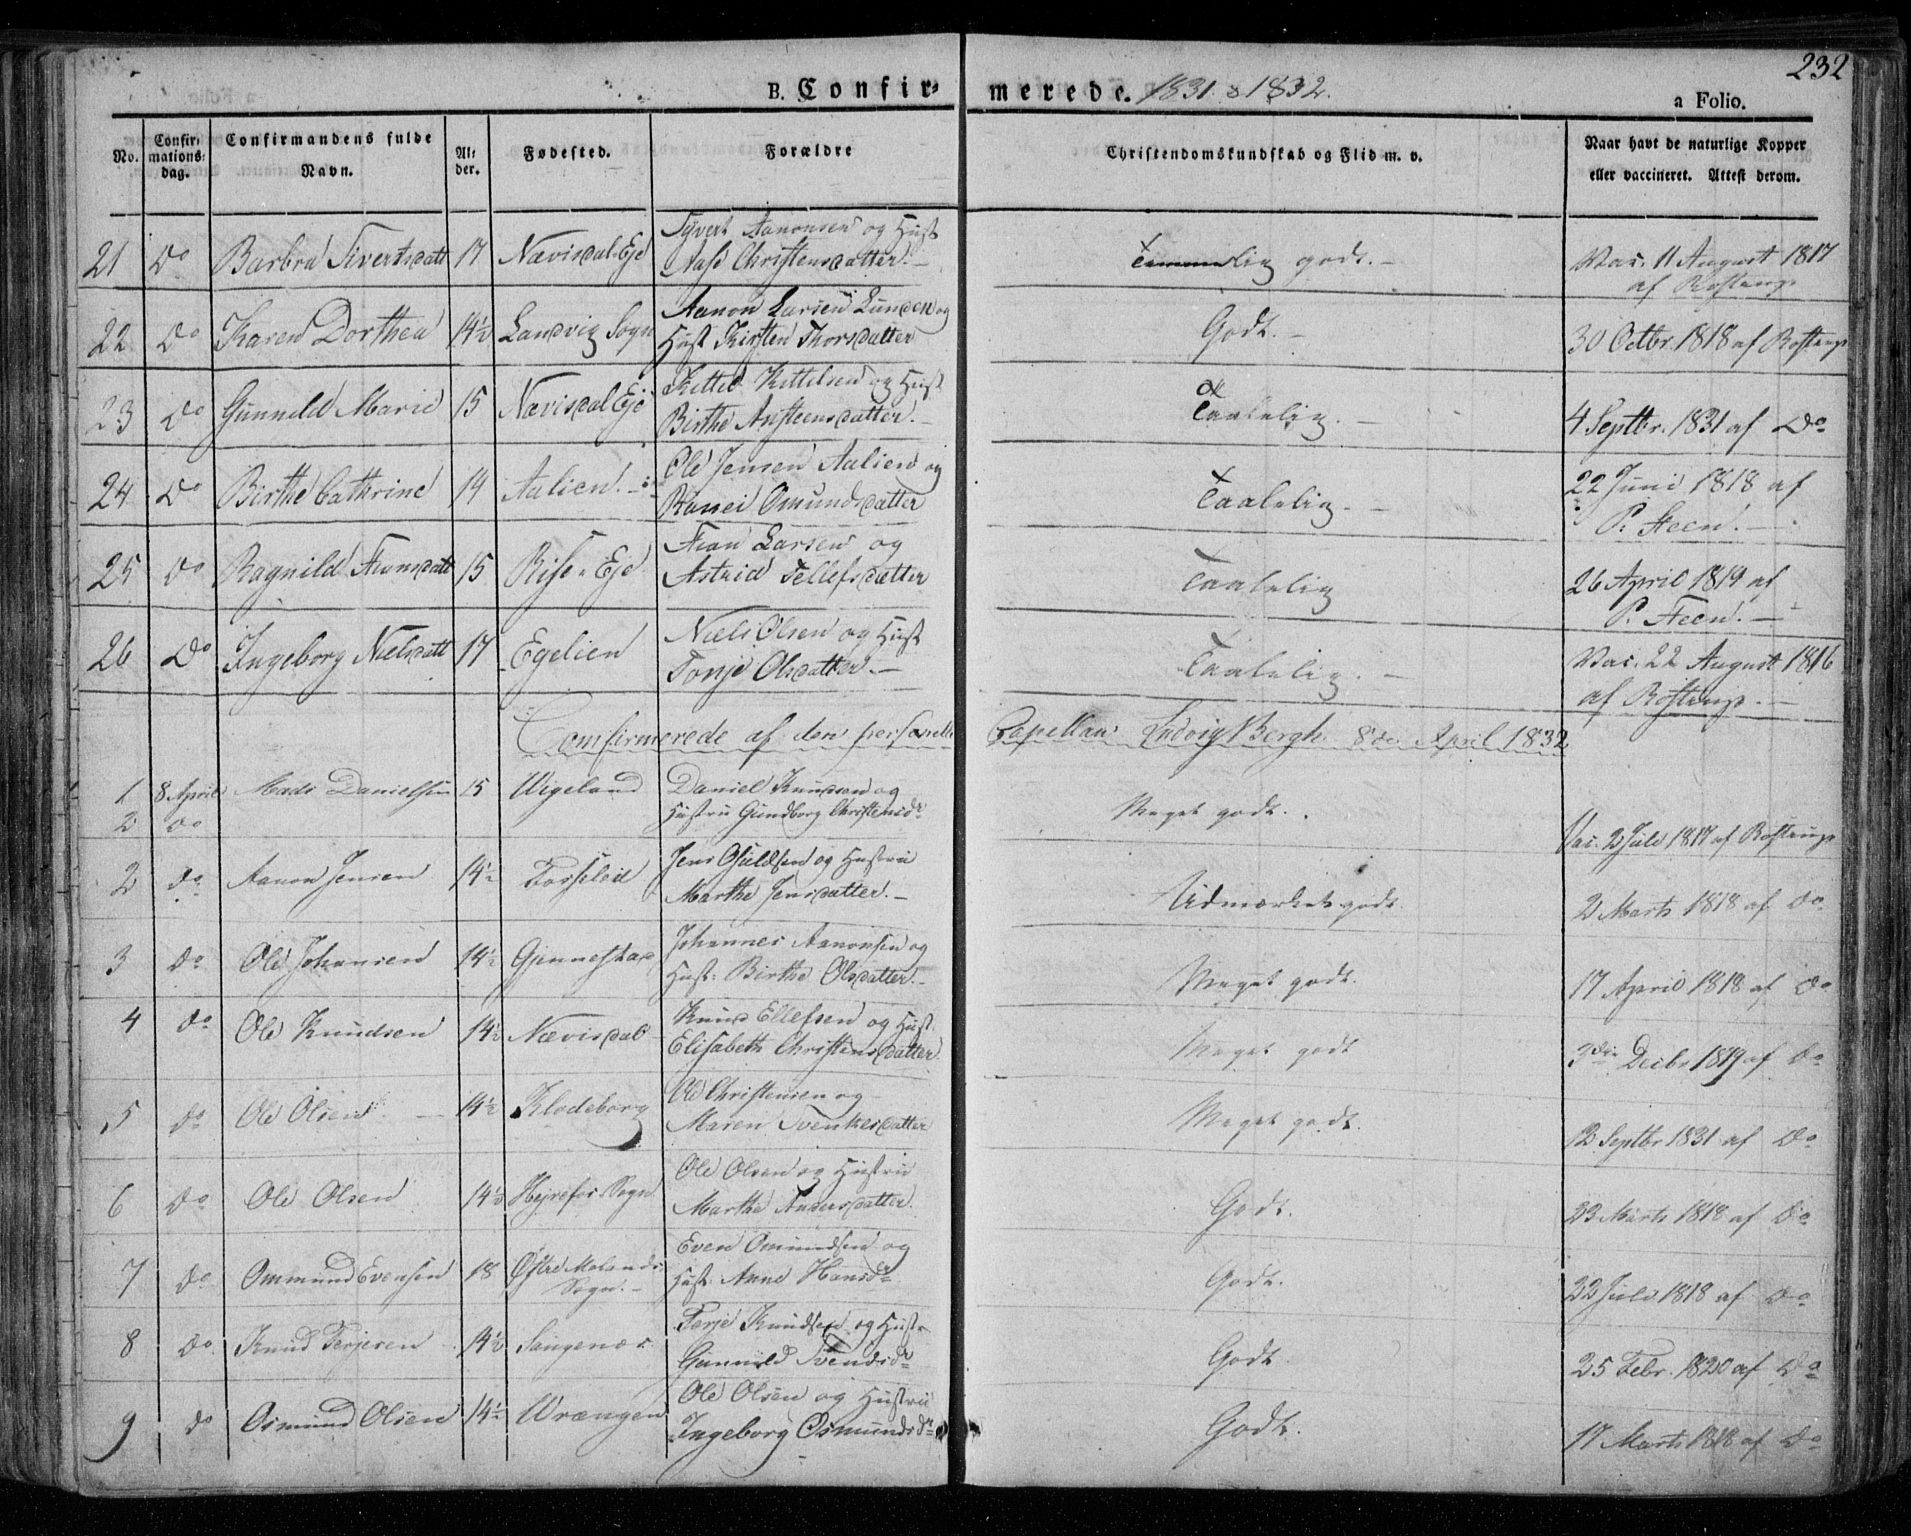 232
B. Confir- merede. 1831 & 1832.
a Folio.
No.
Confir-
mations-
dag.
Confirmandens fulde
Navn.
Al-
der.
Fødested.
Forældre
Christendomskundskab og Flid m. v.
Naar havt de naturlige Kopper
eller vaccineret. Attest derom.
21 Do Barbra Sivertsdatt 17 Nævisdal Eje
Syvert Aanonsen og Hust
Christensdatter. –
Temmelig godt. –
Vac. 11 August 1817
af Rostrup
22 Do Karen Dorthea 14½ Landvig Sogn
Aanon Larsen Lunden og
Hust Kirsten Thorsdatter
Godt. –
30 Octbr. 1818 af Rostrup
23 Do Gunneld Marie 15 Nævisdal Eje
Kittel Kittelsen og Hust
Birthe Austeensdatter. –
Taalelig. –
4 Septbr. 1831 af Do
24 Do Birthe Cathrine 14 Aalien. –
Ole Jensen Aalien og
Omundsdatter
Taalelig. –
22 Juni 1818 af
P. Steen. –
25 Do Ragnild 15 Rise Eje
Larsen og
Astrid Tellefsdatter
Taalelig
26 April 1819 af
P. Steen. –
26 Do Ingeborg Nielsdatt 17 Egelien
Niels Olsen og Hust
Tonje Olsdatter. –
Taalelig. –
Vac. 22 August 1816
af Rostrup. –
Confirmerede af den personelle Capellan Ludvig Bergh 8de April 1832
1 8 April Mads Danielsen 15 Vigeland
Daniel Knudsen og
Hustru Gundborg Christensdr
Meget godt.
Vac. 2 Juli 1817 af Rostrup
2 Do
2 Do Aanon Jensen 14½
Jens og Hustru
Marthe Jensdatter. –
Udmærket godt.
2 Marts 1818 af Do
3 Do Ole Johansen 14½ Gjennestad
Johannes Aanonsen og
Hust. Birthe Olsdatter. –
Meget godt.
17 April 1818 af Do
4 Do Ole Knudsen 14½ Nævisdal
Knud Ellefsen og Hust.
Elisabeth Christensdatter
Meget godt
3die Decbr 1819 af Do
5 Do Ole Olsen – 14½ Klodeborg
Ole Christensen og
Maren Svenkesdatter
Meget godt.
12 Septbr 1831 af Do
6 Do Ole Olsen 14½ Hejrefos Sogn
Ole Olsen og Hustru
Marthe Andersdatter.
Godt.
23 Marts 1818 af Do
7 Do Ommund Evensen 18 Østre Molands
Sogn. –
Even Omundsen og
Hust. Anne Hansdr
Godt.
22 Juli 1818 af Do
8 Do. Knud Terjesen 14½ Sangenæs
Terje Knudsen og Hustr
Gunnild Svendsdr
Godt.
25 Febr. 1820 af Do
9 Do Osmund Olsen 14½ Wrængen
Ole Olsen og Hustru
Ingeborg Osmundsdr
Godt.
17 Marts 1818 af Do